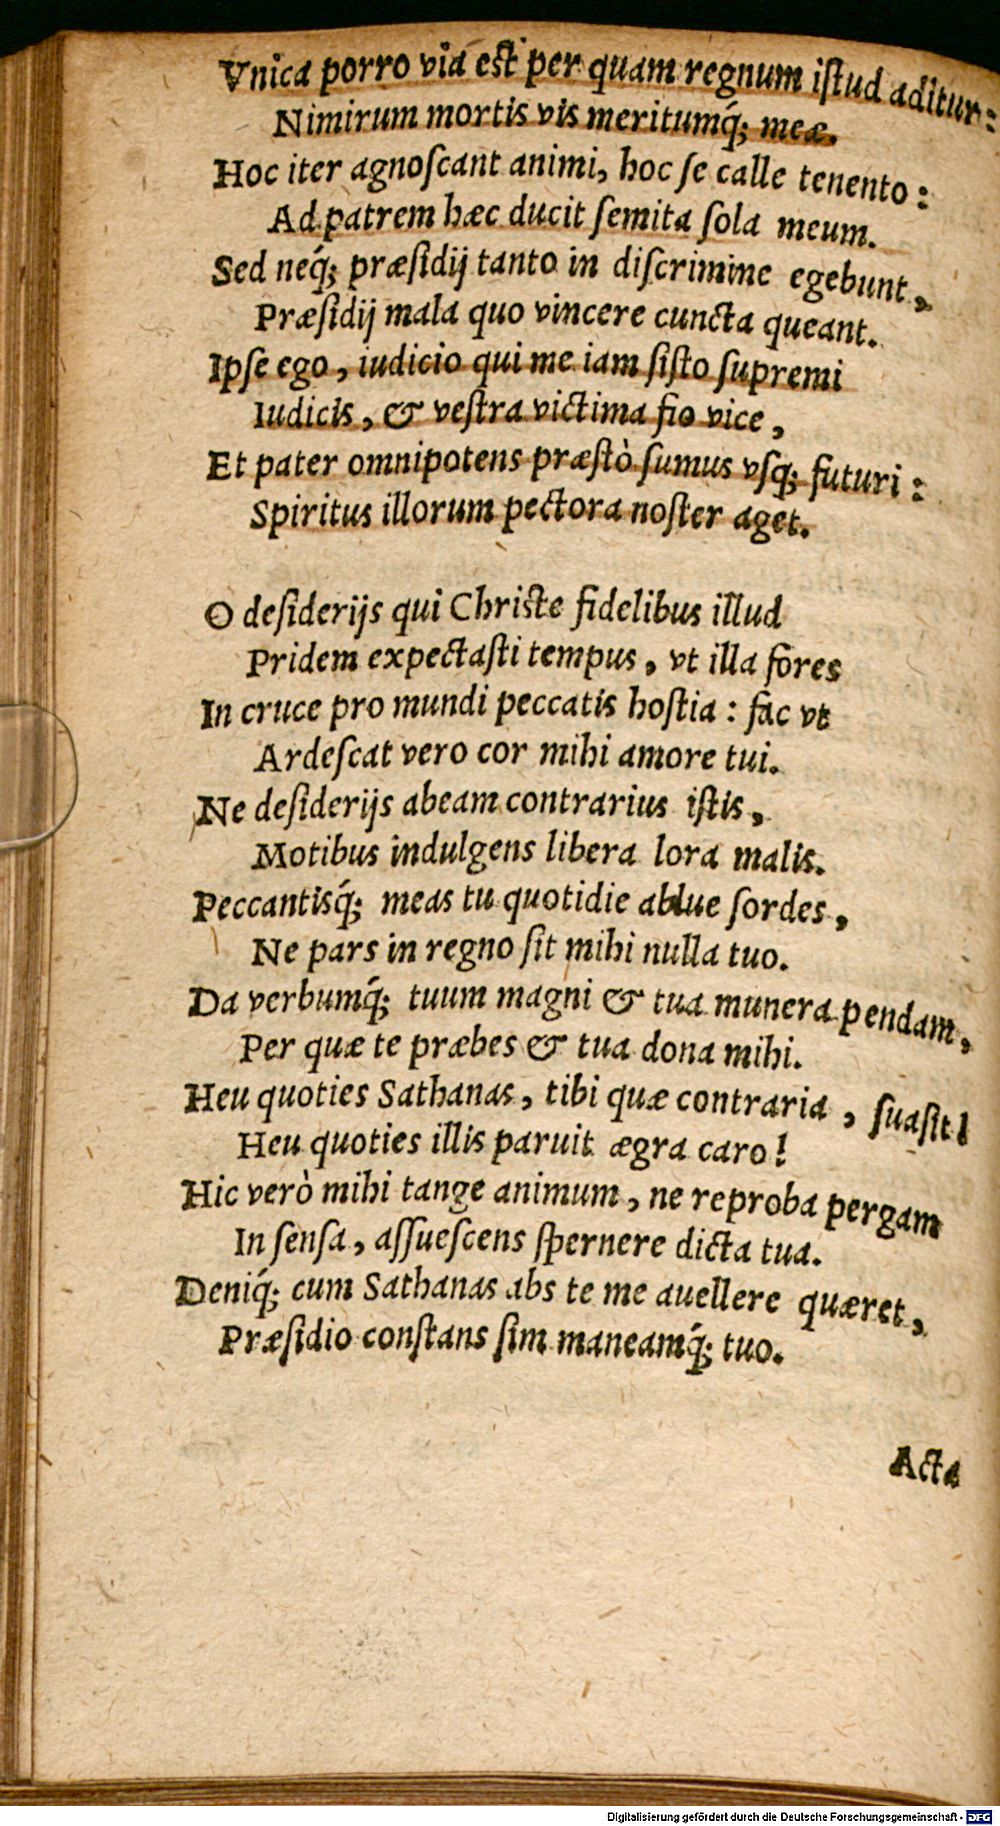 Vnica porro via est per quam regnum iſtud aditur:
Nimirum mortis vis meritumq́; meæ.
Hoc iter agnoſcant animi, hoc ſe calle tenento:
Ad patrem hæc ducit ſemita ſola meum.
Sed neq́; præſidij tanto in diſcrimine egebunt,
Præſidij mala quo vincere cuncta queant.
Ipſe ego, iudicio qui me iam ſiſto ſupremi
Iudicis, & veſtra victima fio vice,
Et pater omnipotens præſtò ſumus vſq; futuri:
Spiritus illorum pectora noſter aget.
O deſiderijs qui Chriſte fidelibus illud
Pridem expectaſti tempus, vt illa fores
In cruce pro mundi peccatis hoſtia: fac vt
Ardeſcat vero cor mihi amore tui.
Ne deſiderijs abeam contrarius iſtis,
Motibus indulgens libera lora malis.
Peccantisq́; meas tu quotidie ablue ſordes,
Ne pars in regno ſit mihi nulla tuo.
Da verbumq́; tuum magni & tua munera pendam,
Per quæ te præbes & tua dona mihi.
Heu quoties Sathanas, tibi quæ contraria, ſuaſit!
Heu quoties illis paruit ægra caro!
Hic verò mihi tange animum, ne reproba pergam
In ſenſa, aſſueſcens ſpernere dicta tua.
Deniq́; cum Sathanas abs te me auellere quæret,
Præſidio conſtans ſim maneamq́; tuo.
Acta
Digitalisierung gefördert durch die Deutsche Forschungsgemeinschaft - DFG